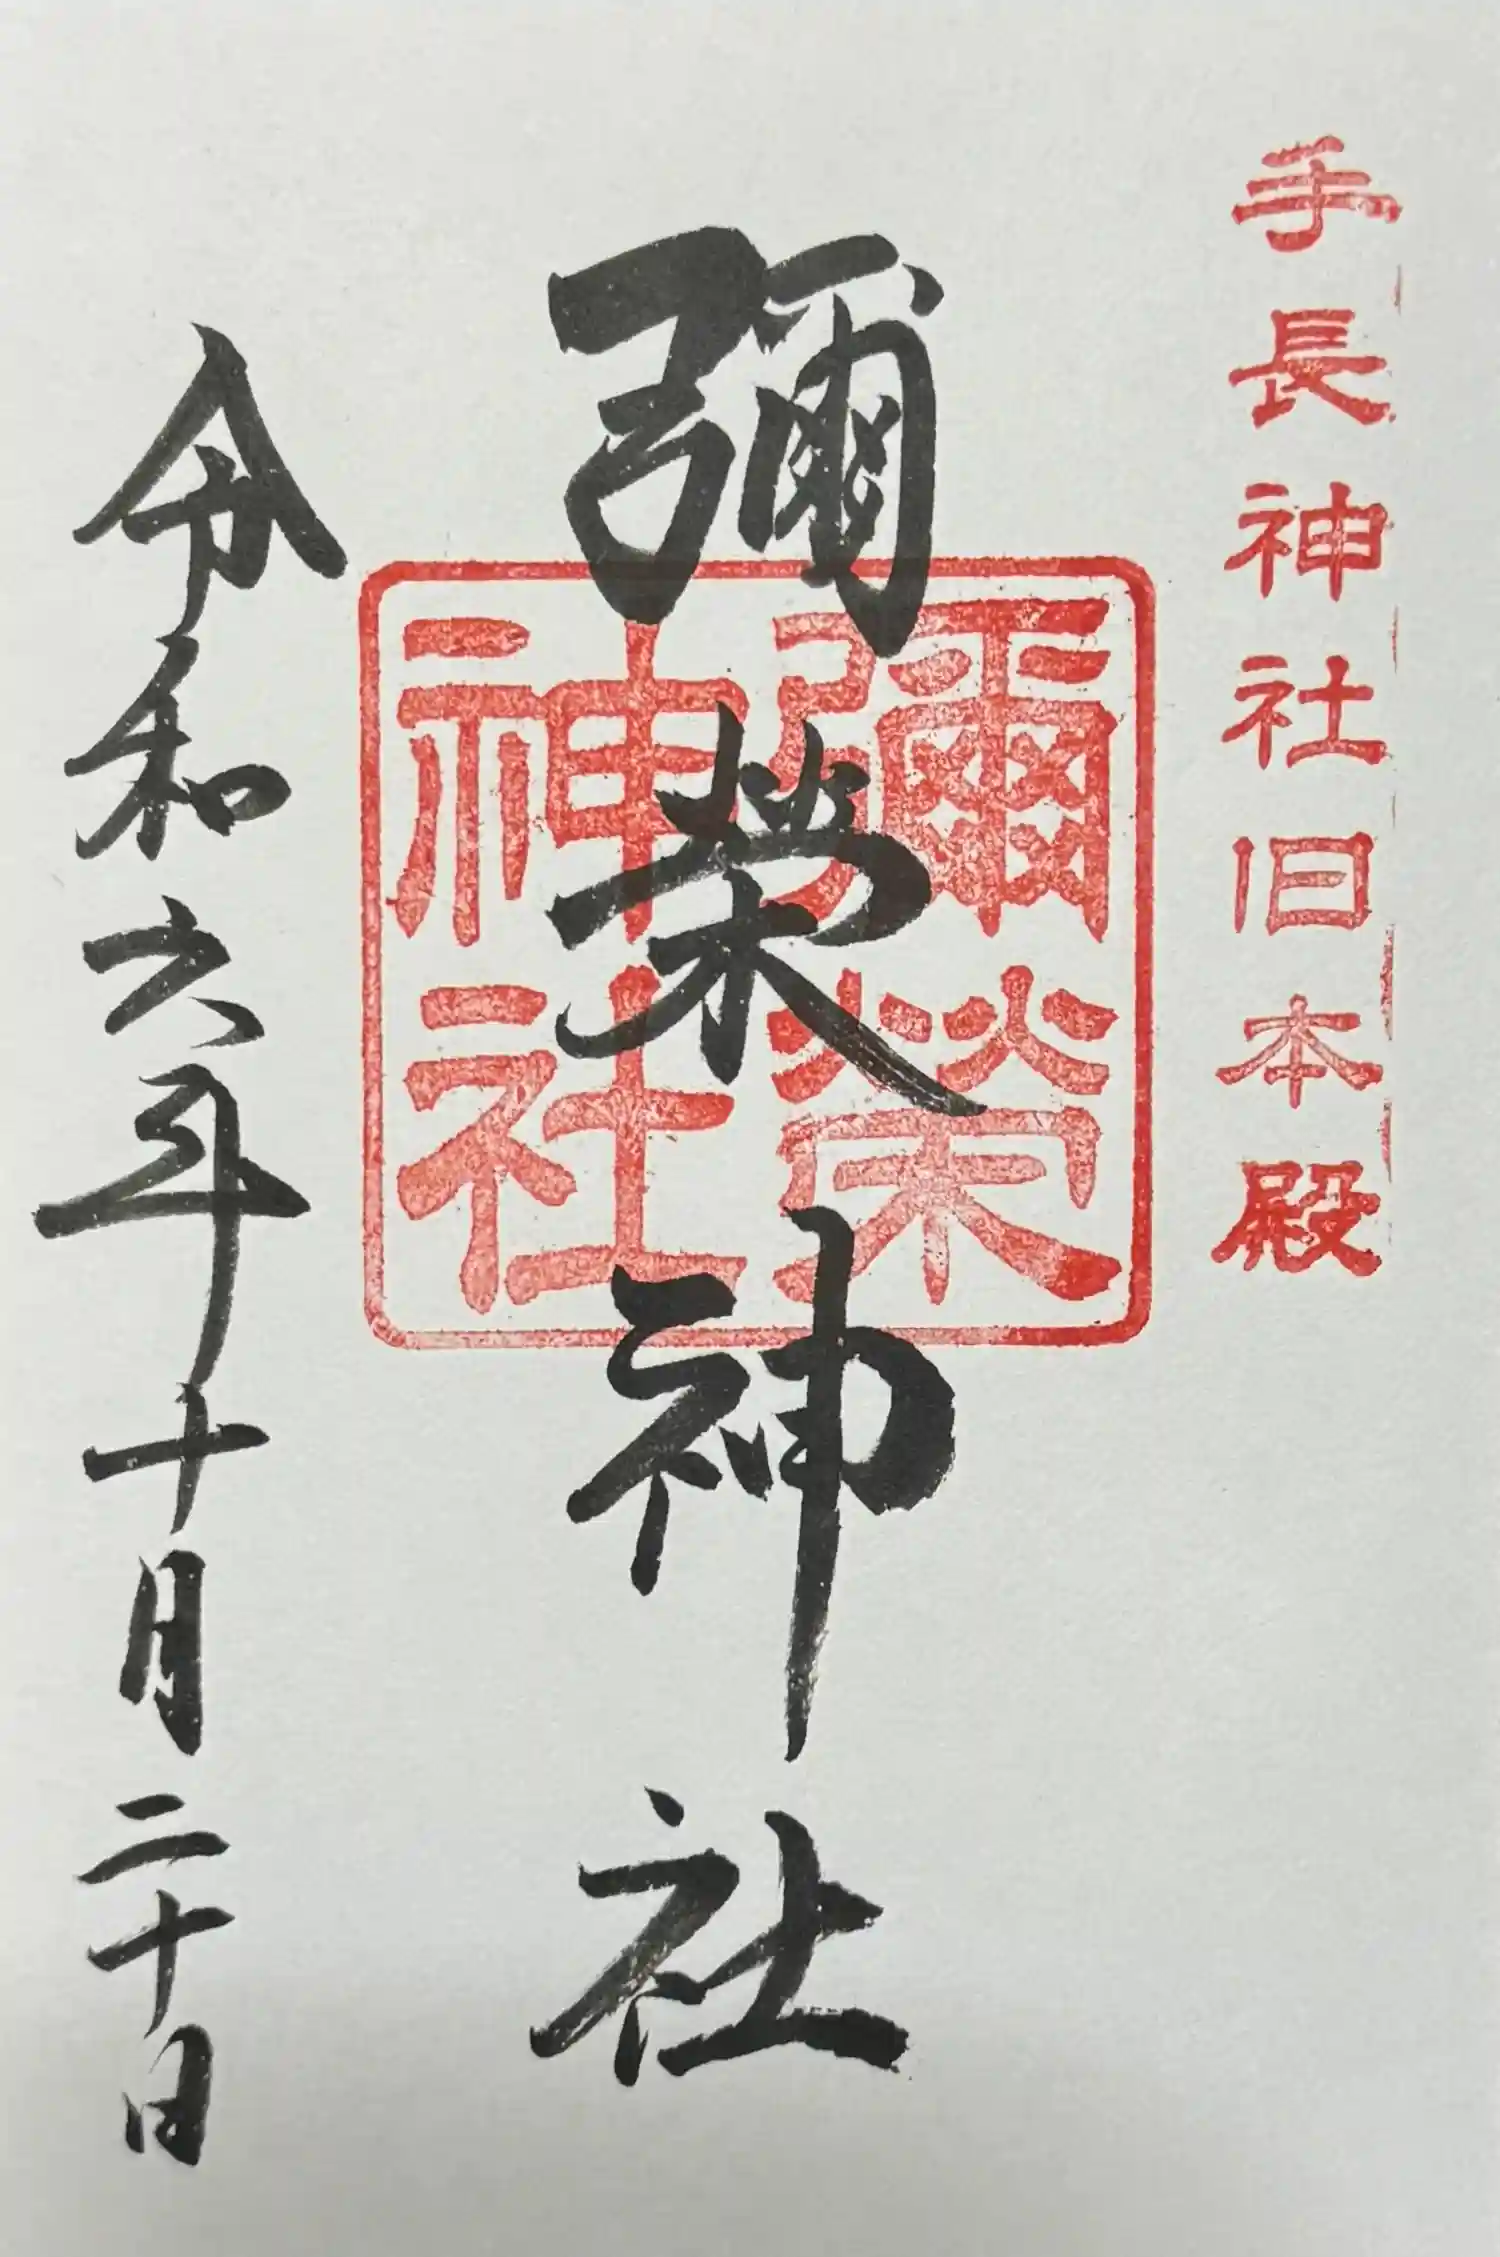 手長神社旧本殿
彌榮神社
彌榮神社
令和六年十月二十日